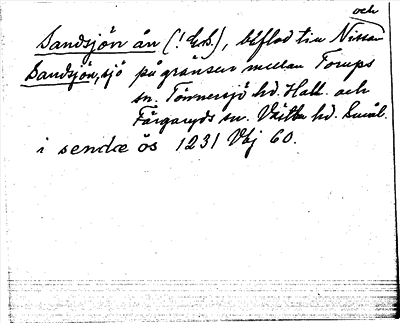 och
Sandsjön ån (! G.S.), bifl od till Nissan
Sandsjön, sjö på gränsen mellan Torups
sn. Tönnersjö hd. Hall. och
Färgaryds sn. Västbo hd. Smål.
i sendæ ös 1231 Vbj 60.